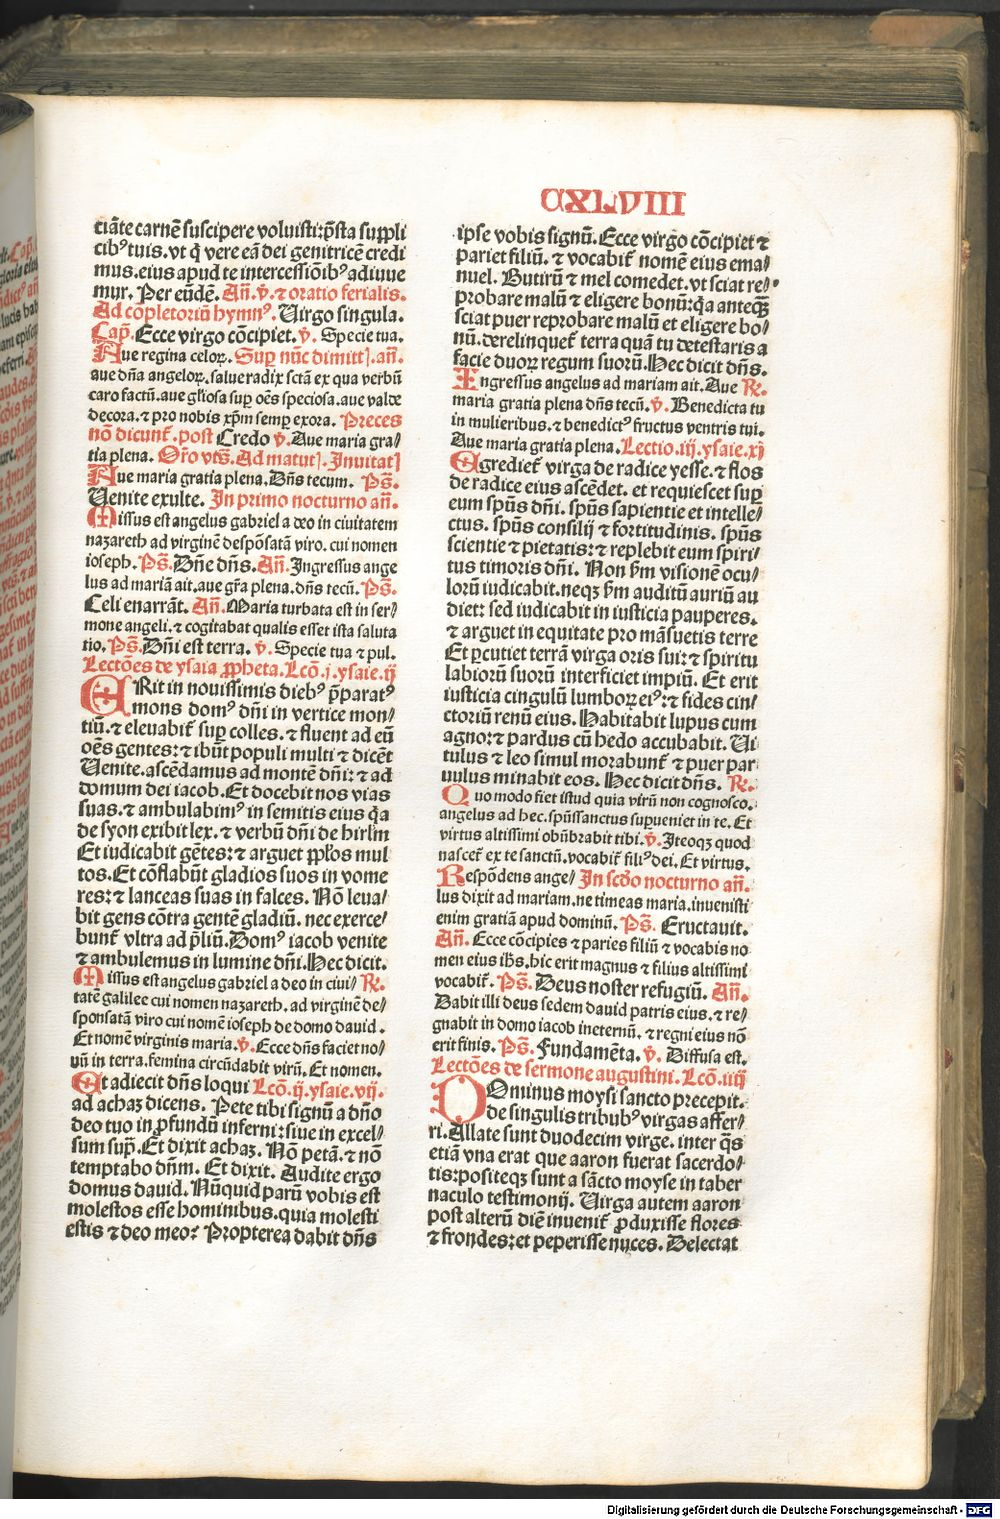 CXLVIII
ciãte carnē suscipere voluisti: p̄sta suppli
cibꝰ tuis. vt q̄ vere eã dei genitricē credi
mus. eius apud te intercessiõibꝰ adiuue
mur. Per eūdē. Añ. ꝟ. ⁊ oratio ferialis.
Ad cõpletoriū hymnꝰ. Uirgo singula.
Cap̃. Ecce virgo cõcipiet. ꝟ. Specie tua.
Aue regina celoꝝ. Sup̱ nūc dimitt̉. añ.
aue dña angeloꝝ. salue radix sctã ex qua verbū
caro factū. aue gl̄iosa sup̱ oēs speciosa. aue valde
decora. ⁊ pro nobis xp̄m semp̱ exora. Preces
nõ dicunt̃. post Credo ꝟ. Aue maria gra/
tia plena. Or̄o vts̄. Ad matut̉. Inuitat̉
Aue maria gratia plena. Dñs tecum. Ps̄.
Uenite exulte. In primo nocturno añ.
Missus est angelus gabriel a deo in ciuitatem
nazareth ad virginē despõsatã viro. cui nomen
ioseph. Ps̄. Dñe dñs. Añ. Ingressus ange
lus ad mariã ait. aue gr̄a plena. dñs tecū. Ps̄.
Celi enarrãt. Añ. Maria turbata est in ser/
mone angeli. ⁊ cogitabat qualis esset ista saluta
tio. Ps̄. Dñi est terra. ꝟ. Specie tua ⁊ pul.
Lectões de ysaia ꝓpheta. Lcõ. j. ysaie. ij
ERit in nouissimis diebꝰ p̄paratꝰ
mons domꝰ dñi in vertice mon/
tiū. ⁊ eleuabit̃ sup̱ colles. ⁊ fluent ad eū
oēs gentes: ⁊ ibūt populi multi ⁊ dicēt
Uenite. ascēdamus ad montē dñi: ⁊ ad
domum dei iacob. Et docebit nos vias
suas. ⁊ ambulabimꝰ in semitis eius q̄a
de syon exibit lex. ⁊ verbū dñi de hirl̄m
Et iudicabit gētes: ⁊ arguet pp̄l̄os mul
tos. Et cõflabūt gladios suos in vome
res: ⁊ lanceas suas in falces. Nõ leua/
bit gens cõtra gentē gladiū. nec exerce/
bunt̃ vltra ad p̄liū. Domꝰ iacob venite
⁊ ambulemus in lumine dñi. Hec dicit.
Missus est angelus gabriel a deo in ciui/ R̄.
tatē galilee cui nomen nazareth. ad virginē de/
sponsatã viro cui nomē ioseph de domo dauid.
Et nomē virginis maria. ꝟ. Ecce dñs faciet no/
uū in terra. femina circūdabit virū. Et nomen.
Et adiecit dñs loqui Lcõ. ij. ysaie. vij.
ad achaz dicens. Pete tibi signū a dño
deo tuo in ꝓfundū inferni: siue in excel/
sum sup̱. Et dixit achaz. Nõ petã. ⁊ nõ
temptabo dñm. Et dixit. Audite ergo
domus dauid. Nūquid parū vobis est
molestos esse hominibus. quia molesti
estis ⁊ deo meo? Propterea dabit dñs
ipse vobis signū. Ecce virgo cõcipiet ⁊
pariet filiū. ⁊ vocabit̃ nomē eius ema/
nuel. Butirū ⁊ mel comedet. vt sciat re/
probare malū ⁊ eligere bonū: q̄a anteqꝫ
sciat puer reprobare malū et eligere bo/
nū. derelinquet̃ terra quã tu detestaris a
facie duoꝝ regum suorū. Hec dicit dñs.
Ingressus angelus ad mariam ait. Aue R̄.
maria gratia plena dñs tecū. ꝟ. Benedicta tu
in mulieribus. ⁊ benedictꝰ fructus ventris tui.
Aue maria gratia plena. Lectio. iij. ysaie. xj
EGrediet̃ virga de radice yesse. ⁊ flos
de radice eius ascēdet. et requiescet sup̱
eum spūs dñi. spūs sapientie et intelle/
ctus. spūs consilij ⁊ fortitudinis. spūs
scientie ⁊ pietatis: ⁊ replebit eum spiri/
tus timoris dñi. Non s̄m visionē ocu/
lorū iudicabit. neqꝫ s̄m auditū auriū au
diet: sed iudicabit in iusticia pauperes.
⁊ arguet in equitate pro mãsuetis terre
Et ꝑcutiet terrã virga oris sui: ⁊ spiritu
labiorū suorū interficiet impiū. Et erit
iusticia cingulū lumboꝝ eiꝰ: ⁊ fides cin/
ctoriū renū eius. Habitabit lupus cum
agno: ⁊ pardus cū hedo accubabit. Ui
tulus ⁊ leo simul morabunt̃ ⁊ puer par
uulus minabit eos. Hec dicit dñs. R̄.
Quo modo fiet istud quia virū non cognosco.
angelus ad hec. spūssanctus sup̱ueniet in te. Et
virtus altissimi obūbrabit tibi. ꝟ. Iteoqꝫ quod
nascet̃ ex te sanctū. vocabit̃ filiꝰ dei. Et virtus.
Respõdens ange/ In scd̄o nocturno añ.
lus dixit ad mariam. ne timeas maria. inuenisti
enim gratiã apud dominū. Ps̄. Eructauit.
Añ. Ecce cõcipies ⁊ paries filiū ⁊ vocabis no
men eius ih̄s. hic erit magnus ⁊ filius altissimi
vocabit̃. Ps̄. Deus noster refugiū. Añ.
Dabit illi deus sedem dauid patris eius. ⁊ re/
gnabit in domo iacob in eternū. ⁊ regni eius nõ
erit finis. Ps̄. Fundamēta. ꝟ. Diffusa est.
Lectões de sermone augustini. Lcõ. iiij
DOminus moysi sancto precepit.
de singulis tribubꝰ virgas affer/
ri. Allate sunt duodecim virge. inter q̄s
etiã vna erat que aaron fuerat sacerdo/
tis: positeqꝫ sunt a sãcto moyse in taber
naculo testimonij. Uirga autem aaron
post alterū diē inuenit̃ ꝓduxisse flores
⁊ frondes: et peperisse nuces. Delectat
Digitalisierung gefördert durch die Deutsche Forschungsgemeinschaft - DFG